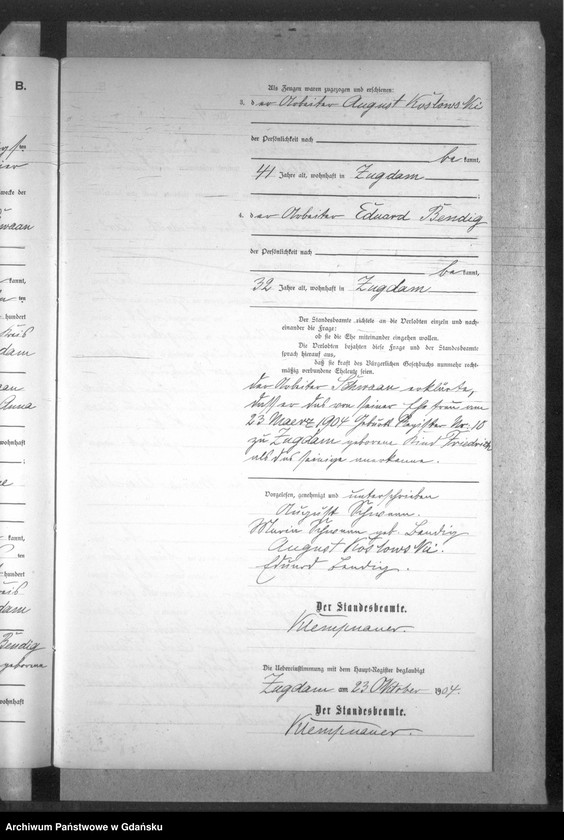 B.
Als Zeugen waren zugezogen und erschienen:
3. der Arbeiter August Koslowski
der Persönlichkeit nach
be kannt,
41 Jahre alt, wohnhaft in Zugdam
;
4. der Arbeiter Eduard Bendig
der Persönlichkeit nach
be kannt,
32 Jahre alt, wohnhaft in Zugdam
.
Der Standesbeamte richtete an die Verlobten einzeln und nach-
einander die Frage:
ob sie die Ehe miteinander eingehen wollen.
Die Verlobten bejahten diese Frage und der Standesbeamte
sprach hierauf aus,
daß sie kraft des Bürgerlichen Gesetzbuchs nunmehr recht-
mäßig verbundene Eheleute seien.
Der Arbeiter Schwaan erklärte,
daß er das von seiner Ehefrau am
23 Maerz 1904 Geburts Register Nr. 10
zu Zugdam geborene Kind Friedrich
als das seinige anerkenne.
Vorgelesen, genehmigt und unterschrieben
August Schwaan.
Maria Schwaan geb. Bendig
August Koslowski.
Eduard Bendig.
Der Standesbeamte.
Klempnauer.
Die Uebereinstimmung mit dem Haupt-Register beglaubigt
Zugdam am 23. Oktober 1904.
Der Standesbeamte.
Klempnauer.
Archiwum Państwowe w Gdańsku